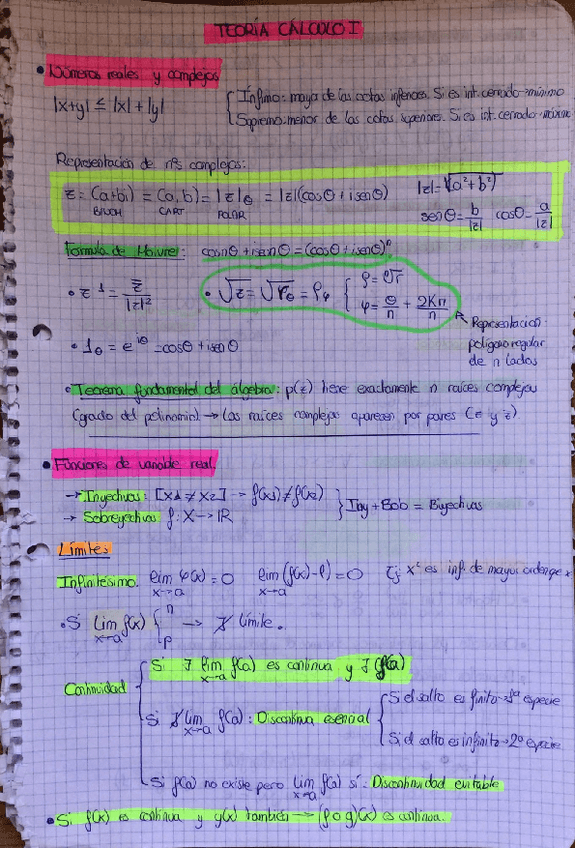 TEORÍA CÁLCULO I
• Números reales y complejos
|x+y| ≤ |x| + |y|
{ Ínfimo: mayor de las cotas inferiores. Si es int. cerrado → mínimo
Supremo: menor de las cotas superiores. Si es int. cerrado → máximo
Representación de nºs complejos:
z = (a+bi) = (a, b) = |z|θ = |z|(cosθ + i senθ) |z| = √(a²+b²)
BINOM CART POLAR senθ = b/|z| cosθ = a/|z|
Formula de Moivre: cosnθ + isenθ = (cosθ + isenθ)ⁿ
• z⁻¹ = z̄/|z|² • ⁿ√z = ⁿ√rθ = ρφ { ρ = ⁿ√r
φ = θ/n + 2Kπ/n
Representación:
polígono regular
de n lados
• 1θ = e^iθ = cosθ + isenθ
• Teorema fundamental del álgebra: p(z) tiene exactamente n raíces complejas
(grado del polinomio) → Las raíces complejas aparecen por pares (z y z̄).
• Funciones de variable real.
→ Inyectivas: [x1 ≠ x2] → f(x1) ≠ f(x2) } Iny + Sob = Biyectivas
→ Sobreyectiva f: X → IR
Límites:
Infinitésimo. lim x→a φ(x) = 0 lim x→a (f(x) - l) = 0 Ej: x² es inf. de mayor orden que x
• Si lim x→a f(x) { n p → ∄ límite.
Continuidad { Si ∃ lim x→a f(x) es continua y ∃ f(a)
Si ∄ lim x→a f(a): Discontinua esencial { Si el salto es finito → 1ª especie
Si el salto es infinito → 2ª especie
Si f(a) no existe pero lim x→a f(a) sí: Discontinuidad evitable
• Si f(x) es continua y g(x) también → (f o g)(x) es continua.